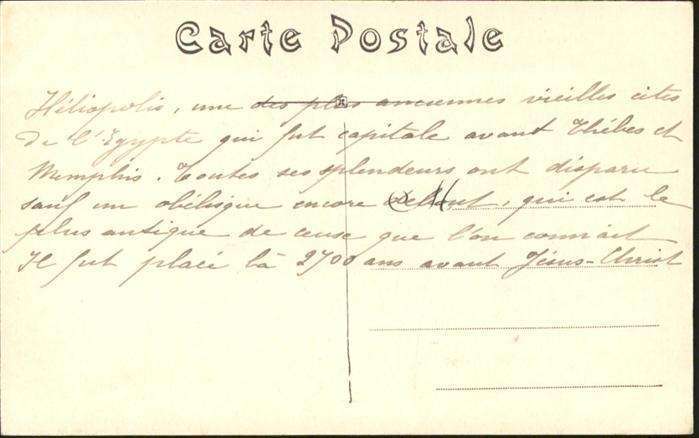 Carte Postale
Héliopolis, une des plus anciennes vieilles cites
de l'Egypte qui fut capitale avant Thèbes et
Memphis. Toutes ses splendeurs ont disparu
sauf un obélisque encore debout, qui est le
plus antique de ceux que l'on connait
Il fut placé là 2700 ans avant Jésus-Christ